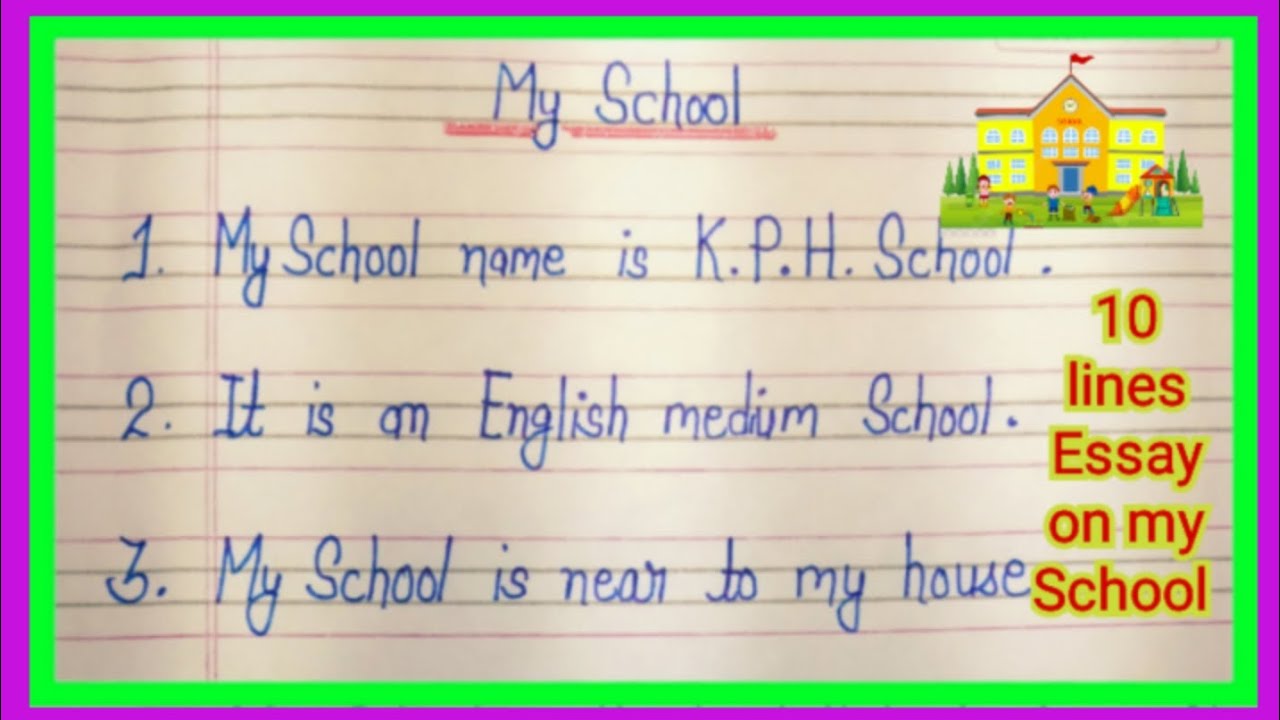 My School
1. My School name is K.P.H. School.
2. It is an English medium School.
3. My School is near to my house
10
lines
Essay
on my
School